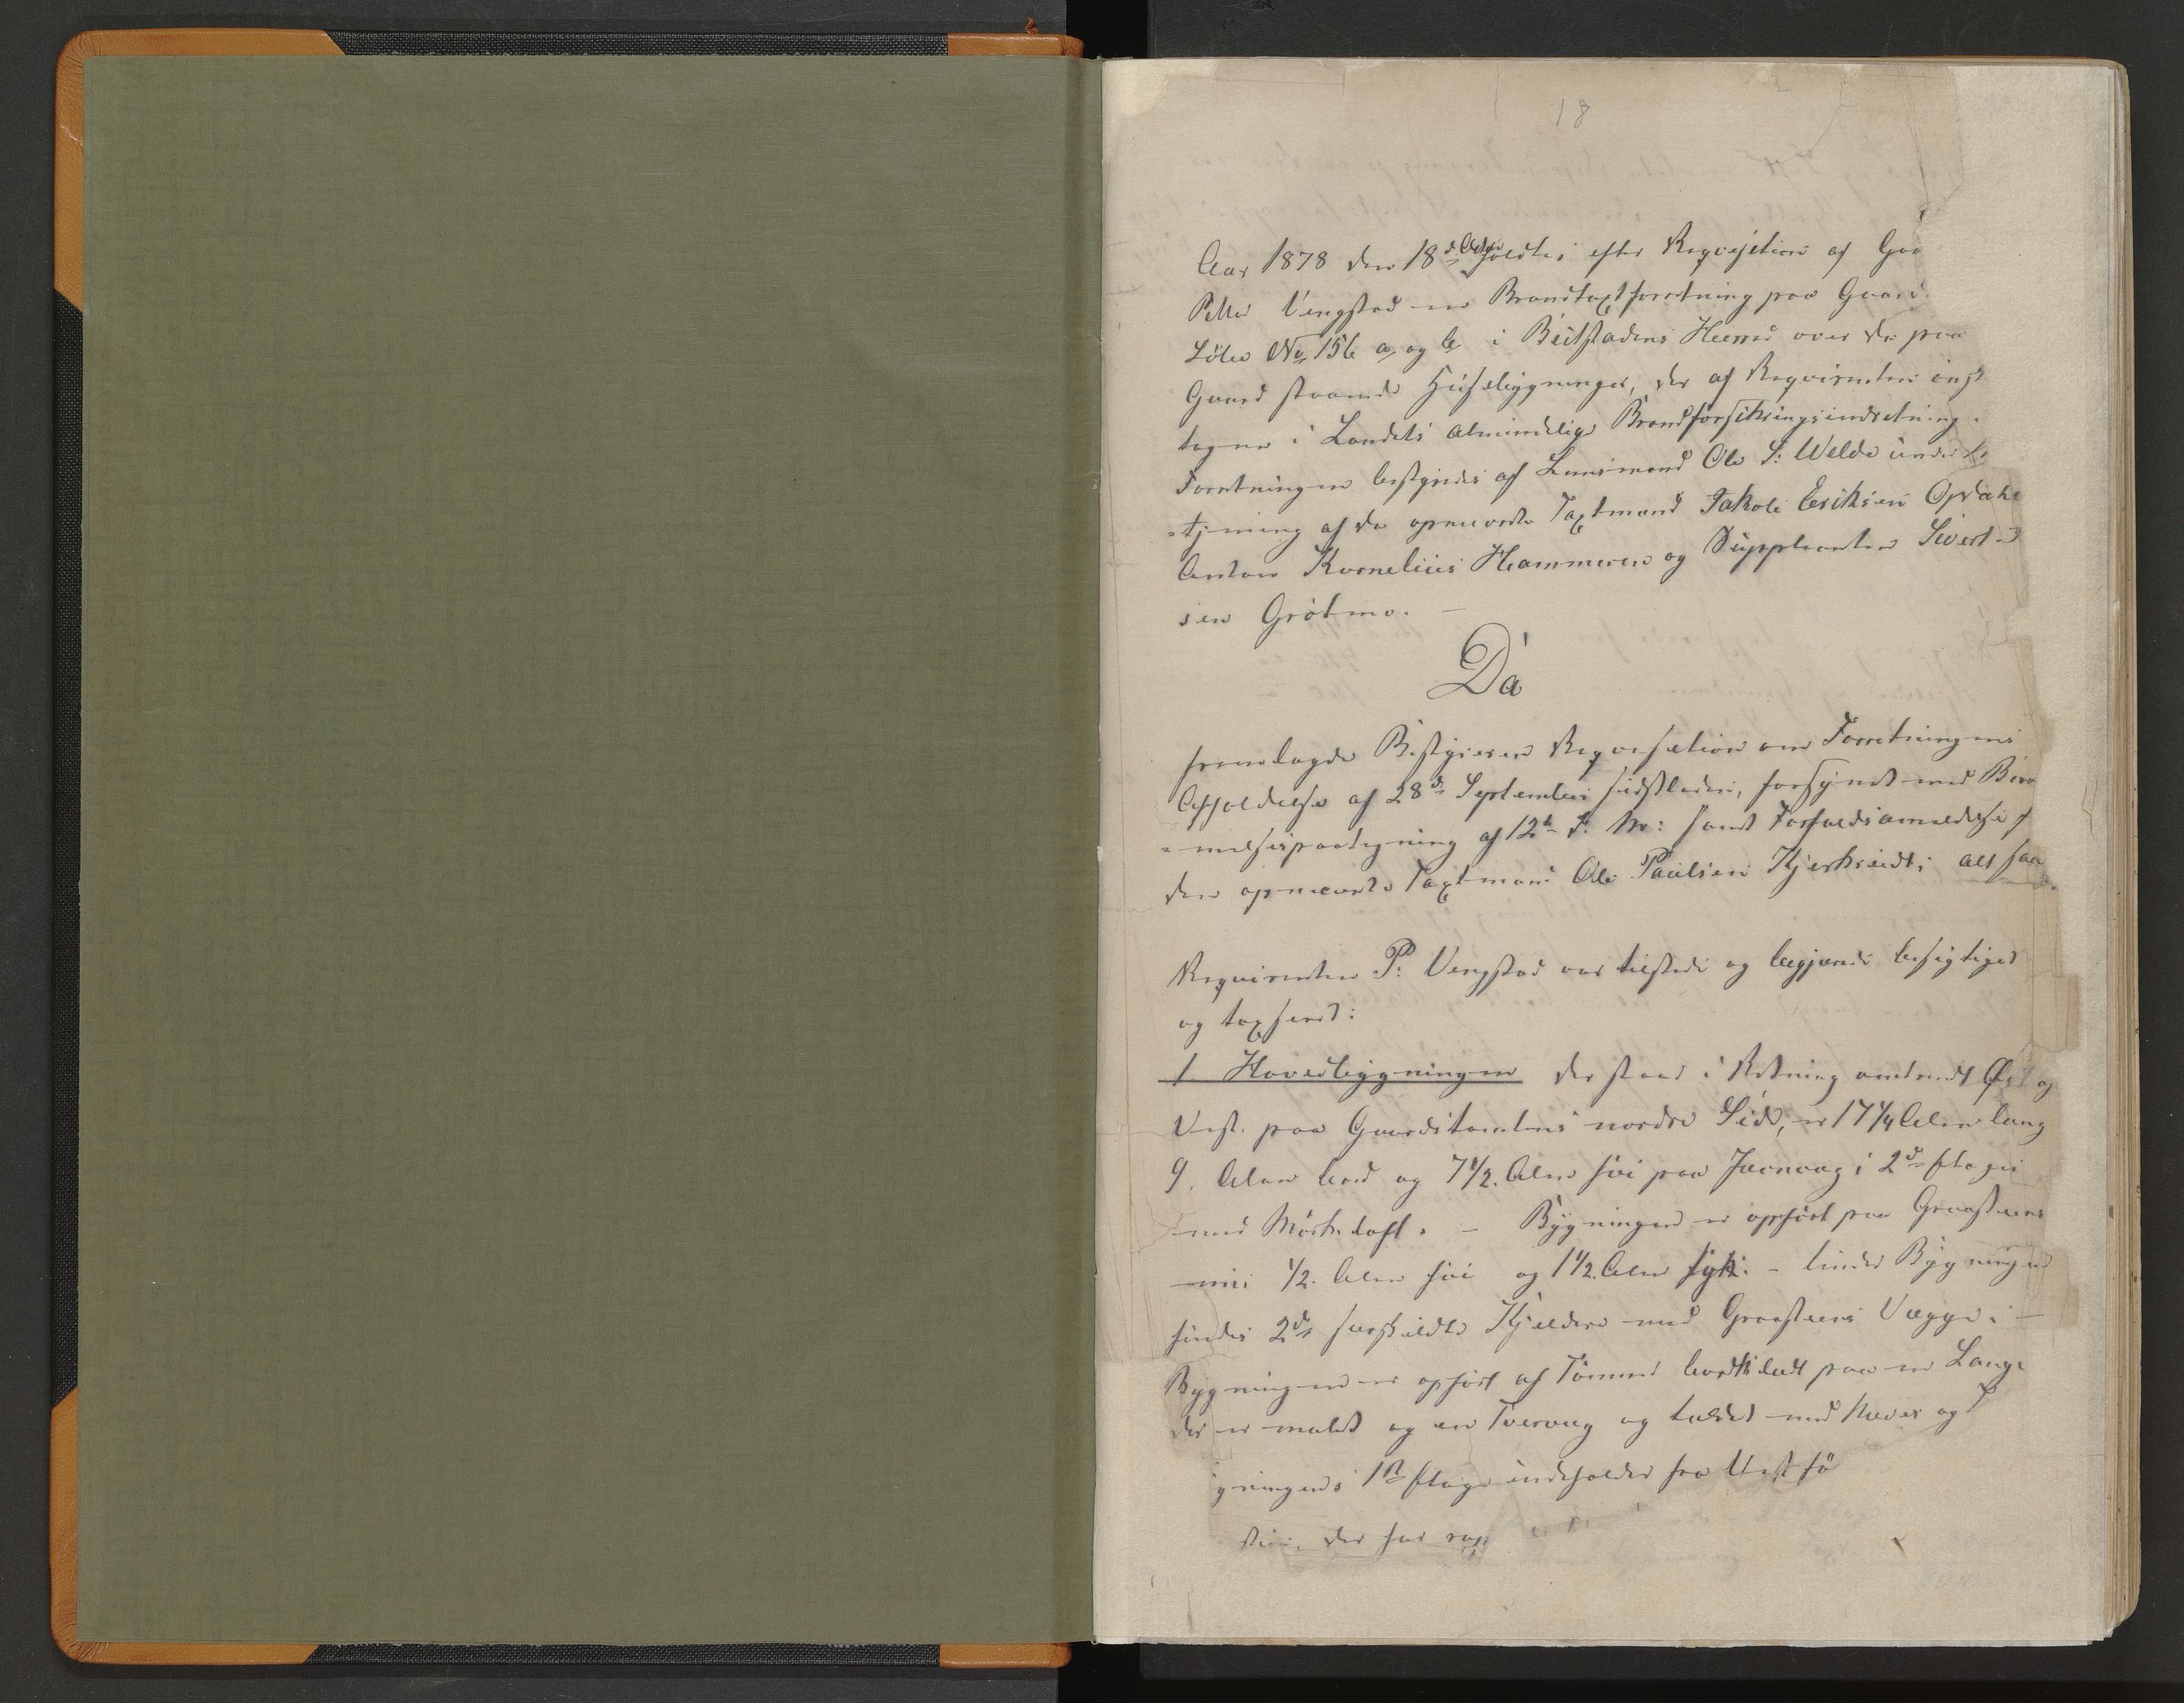 18
Aar 1878 den 18de Octbr holdtes efter Reqvisition af Gaa
Petter Vengstad en Brandtaxtforretning paa Gaard
Løbr No 156 a og b i Beitstadens Herred over de paa
Gaard staaende Huusebygninger, der af Reqvirenten ønsk
tagne i Landets almindelige Brandforsikringsindretning.
Forretningen bestyredes af Lensmand Ole S: Welde under
-tjening af de opnævnte Taxtmænd Jakob Eriksen Opdahl
Anton Kornelius Hammeren og Suppleanten Sivert
sen Grøtmo. –
Da
fremlagde Bestyreren Reqvisition om Forretningens
Afholdelse af 28de September sidstleden, forsynet med Beram
-melsespaategning af 12te d: M: samt Forfaldsanmeldelse f
den opnævnte Taxtmand Ole Paulsen Kjerkreidt; alt saa
Reqvirenten P: Vengstad var tilstede og begjærede besigtiget
og taxseret:
1 Hovedbygningen der staar i Retning omtrendt Øst og
Vest paa Gaardstomtens nordre Side, er 17 1/4 Alen lang
9. Alen bred og 7 1/2. Alen høi paa Jævnvæg i 2de Etager
med Mørkeloft. – Bygningen er opført paa Graasteens
mur 1/2. Alen høi og 1 1/2. Alen tyk. – Under Bygningen
findes 2de særskildte Kjeldere med Graasteens Vægge. –
Bygningen er opført af Tømmer bordklædt paa en Lang
der er malet og en Tvervæg og tækket med Næver og T
ygningens 1ste Etage indeholder fra Vest fø
der har